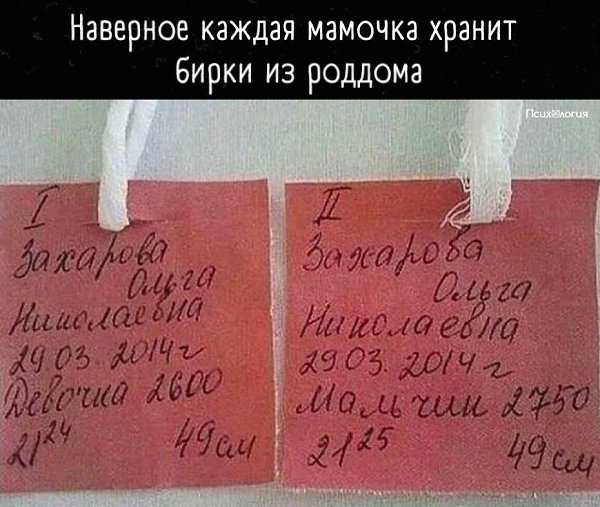 Наверное каждая мамочка хранит
бирки из роддома
Психология
I
Захарова
Ольга
Николаевна
29.03.2014г
Девочка 2600
21 24 49см
II
Захарова
Ольга
Николаевна
29.03.2014г
Мальчик 2750
21 25 49см